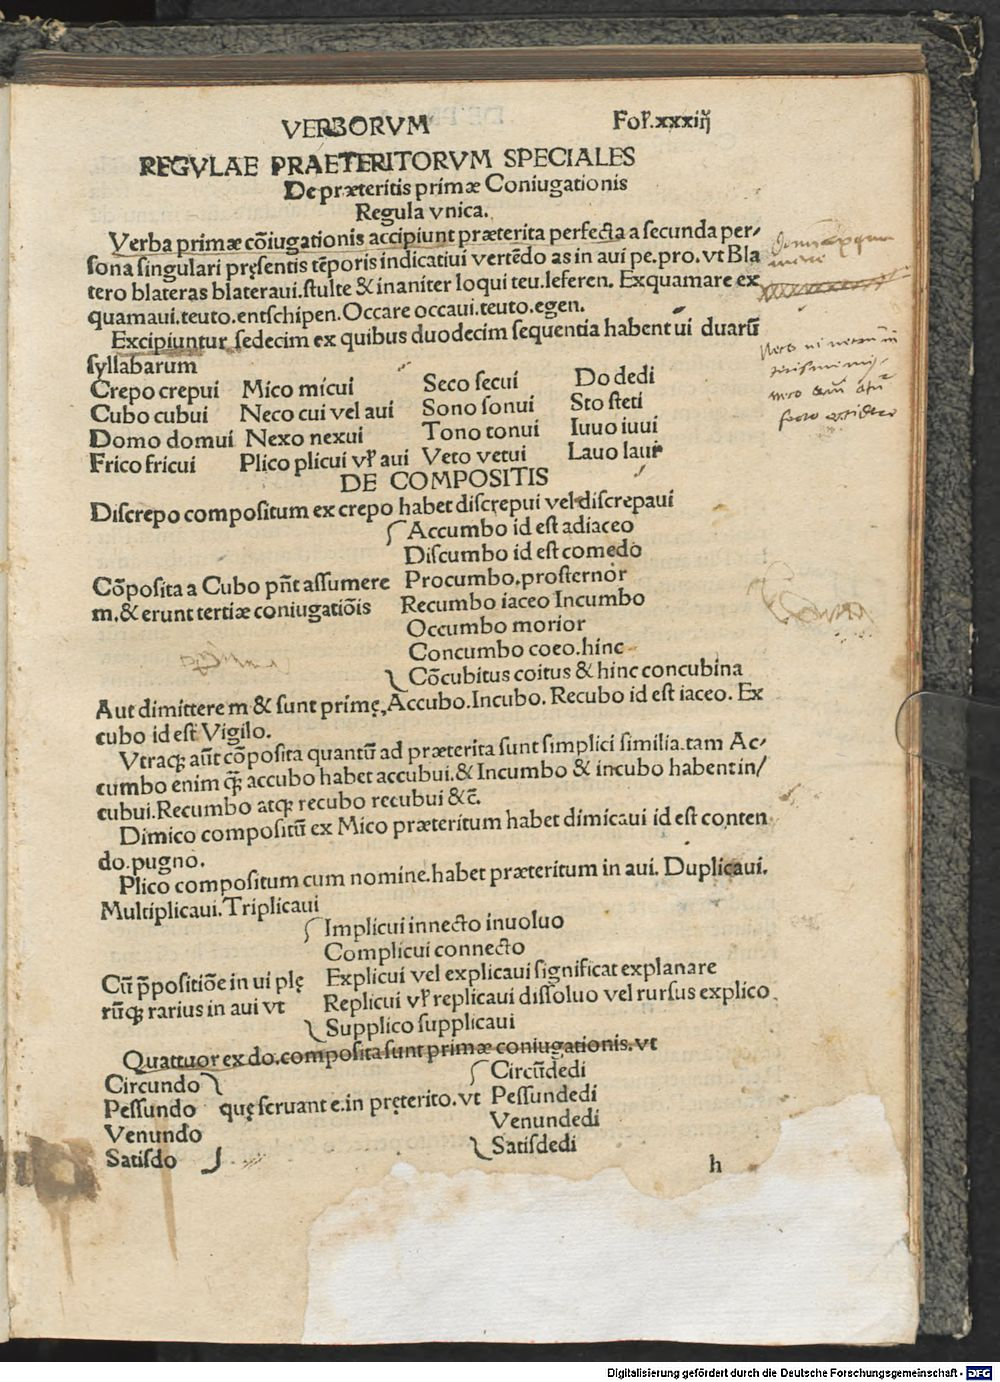 VERBORVM Foł.xxxiiij
REGVLAE PRAETERITORVM SPECIALES
De præteritis primæ Coniugationis
Regula vnica.
Verba primæ cōiugationis accipiunt præterita perfecta a secunda per⸗
ſona ſingulari pręſentis tēporis indicatiui vertēdo as in aui pe.pro.vt Bla
tero blateras blateraui.ſtulte & inaniter loqui teu.leferen. Exquamare ex
quamaui.teuto.entſchipen.Occare occaui.teuto.egen.
Excipiuntur ſedecim ex quibus duodecim ſequentia habent ui duarū
ſyllabarum
Crepo crepui Mico micui Seco ſecui Do dedi
Cubo cubui Neco cui vel aui Sono ſonui Sto ſteti
Domo domui Nexo nexui Tono tonui Iuuo iuui
Frico fricui Plico plicui vł aui Veto vetui Lauo laui
DE COMPOSITIS
Diſcrepo compoſitum ex crepo habet diſcrepui vel diſcrepaui
Accumbo id eſt adiaceo
Diſcumbo id eſt comedo
Cōpoſita a Cubo pn̄t aſſumere Procumbo.proſternor
m.& erunt tertiæ coniugatiōis Recumbo iaceo Incumbo
Occumbo morior
Concumbo coeo.hinc
Cōcubitus coitus & hinc concubina
Aut dimittere m & ſunt primę,Accubo.Incubo. Recubo id eſt iaceo. Ex
cubo id eſt Vigilo.
Vtraqꝫ aūt cōpoſita quantū ad præterita ſunt ſimplici ſimilia.tam Ac⸗
cumbo enim qꝫ̄ accubo habet accubui.& Incumbo & incubo habent in/
cubui.Recumbo atqꝫ recubo recubui &c̄.
Dimico compoſitū ex Mico præteritum habet dimicaui id eſt conten
do.pugno.
Plico compoſitum cum nomine.habet præteritum in aui. Duplicaui.
Multiplicaui.Triplicaui
Implicui innecto inuoluo
Complicui connecto
Cū p̄poſitiōe in ui plę Explicui vel explicaui ſignificat explanare
rūqꝫ rarius in aui vt Replicui vł replicaui diſſoluo vel rurſus explico
Supplico ſupplicaui
Quattuor ex do.compoſita ſunt primæ coniugationis.vt
Circundo Circūdedi
Peſſundo quę ſeruant e.in pręterito.vt Peſſundedi
Venundo Venundedi
Satiſdo Satiſdedi
h
Digitalisierung gefördert durch die Deutsche Forschungsgemeinschaft - DFG